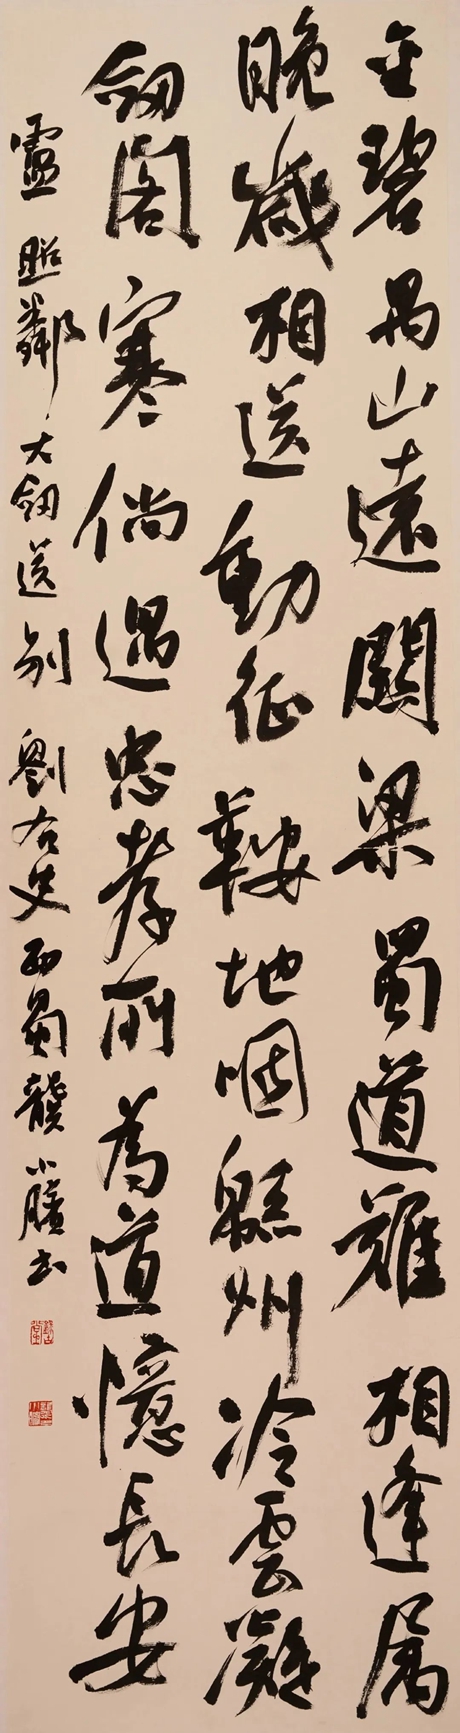 金碧禺山遠關梁蜀道難相逢属
晚歲相送動征鞍地咽緜州冷雲凝
劍閣寒倘遇忠孝所為道憶長安
盧照鄰大劍送別劉右史西蜀龔小臏书